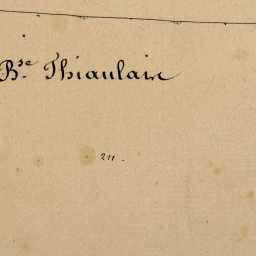 Bse Thiaulaire
211.